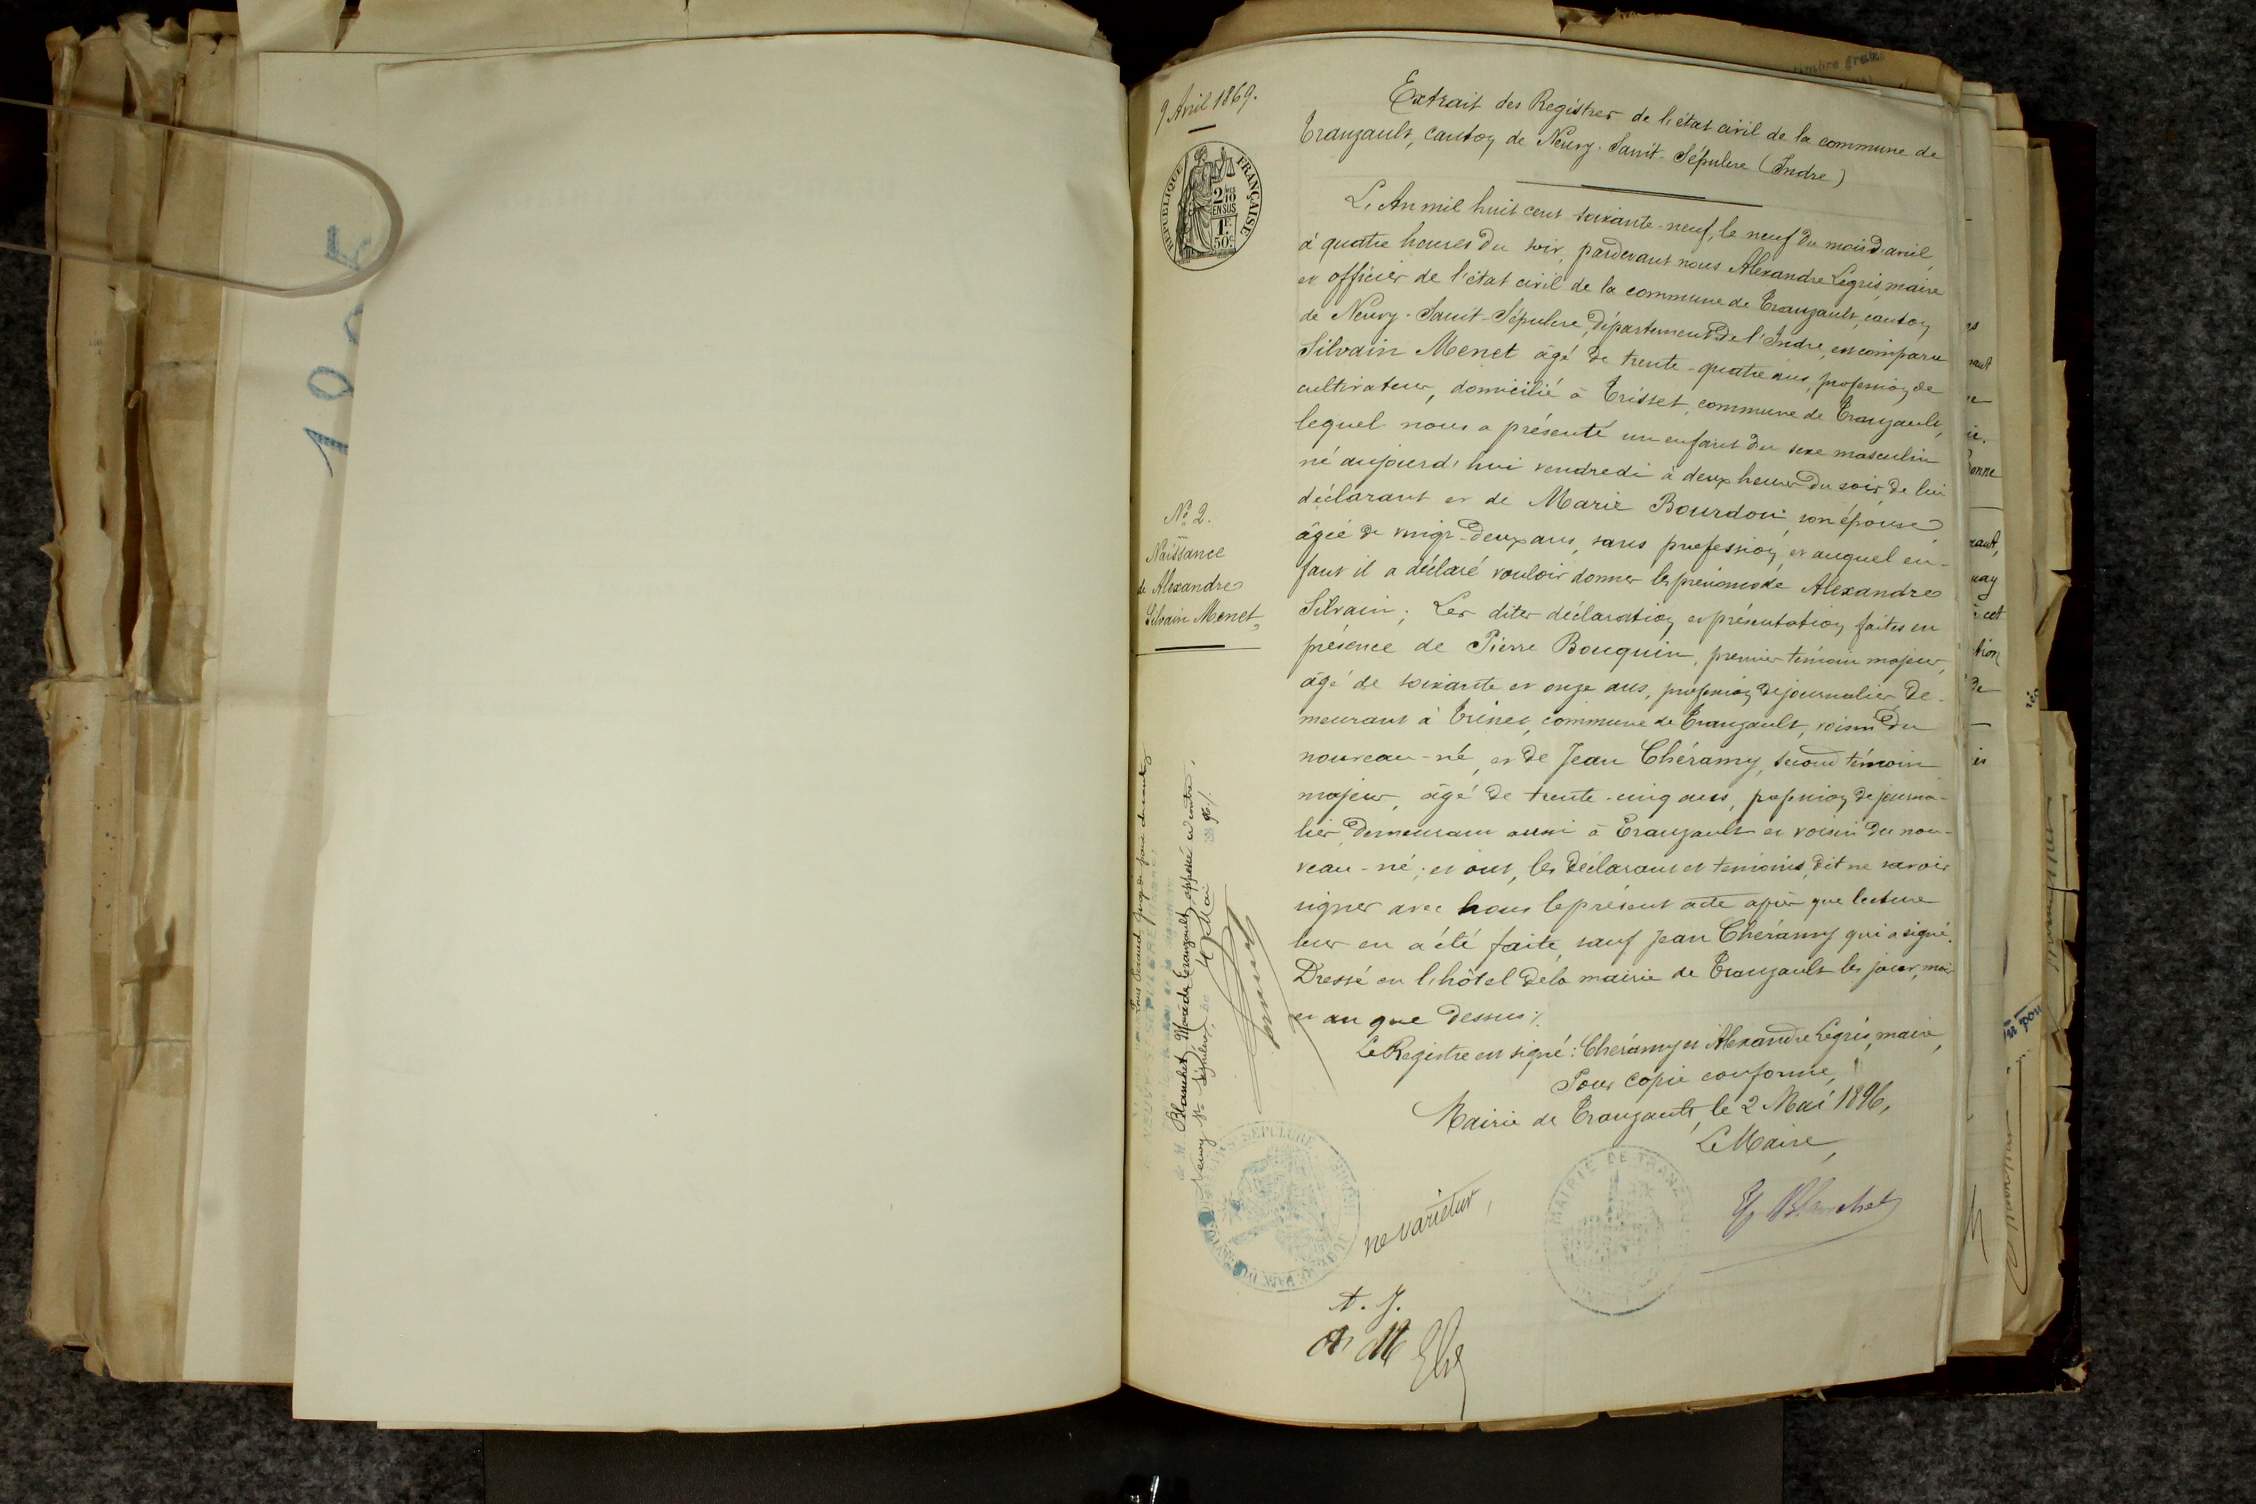 9 Avril 1869.
RÉPUBLIQUE FRANÇAISE
2/10
EN SUS
1F
50c
No 2.
Naissance
de Alexandre
Silvain Menet
Extrait des Registres de l'état civil de la commune de
Tranzault, canton de Neuvy-Saint-Sépulcre (Indre)
L'An mil huit cent soixante-neuf, le neuf du mois d'avril,
à quatre heures du soir, pardevant nous Alexandre Legris, maire
et officier de l'état civil de la commune de Tranzault, canton
de Neuvy-Saint-Sépulcre, département de l'Indre, est comparu
Silvain Menet âgé de trente-quatre ans, profession de
cultivateur, domicilié à Trisset, commune de Tranzault,
lequel nous a présenté un enfant du sexe masculin
né aujourd'hui vendredi à deux heures du soir, de lui
déclarant et de Marie Bourdon, son épouse,
âgée de vingt-deux ans, sans profession, et auquel en-
fant il a déclaré vouloir donner les prénoms de Alexandre
Silvain; Les dites déclaration et présentation faites en
présence de Pierre Bouquin, premier témoin majeur,
âgé de soixante et onze ans, profession de journalier, de-
meurant à Trisset, commune de Tranzault, voisin du
nouveau-né, et de Jean Chéramy, second témoin
majeur, âgé de trente-cinq ans, profession de journa-
lier, demeurant aussi à Tranzault et voisin du nou-
veau-né; et ont, les déclarant et témoins, dit ne savoir
signer avec nous le présent acte après que lecture
leur en a été faite, sauf Jean Chéramy qui a signé.
Dressé en l'hôtel de la mairie de Tranzault les jour, mois
et an que dessus ./.
Le Registre est signé: Chéramy et Alexandre Legris, maire,
Pour copie conforme,
Mairie de Tranzault, le 2 Mai 1896,
Le Maire,
Blanchet
MAIRIE DE TRANZ
ne varietur,
A. J.
Blanchet, Maire de Tranzault, apposée ci-contre.
Neuvy St Sépulcre, le 4 Mai 96